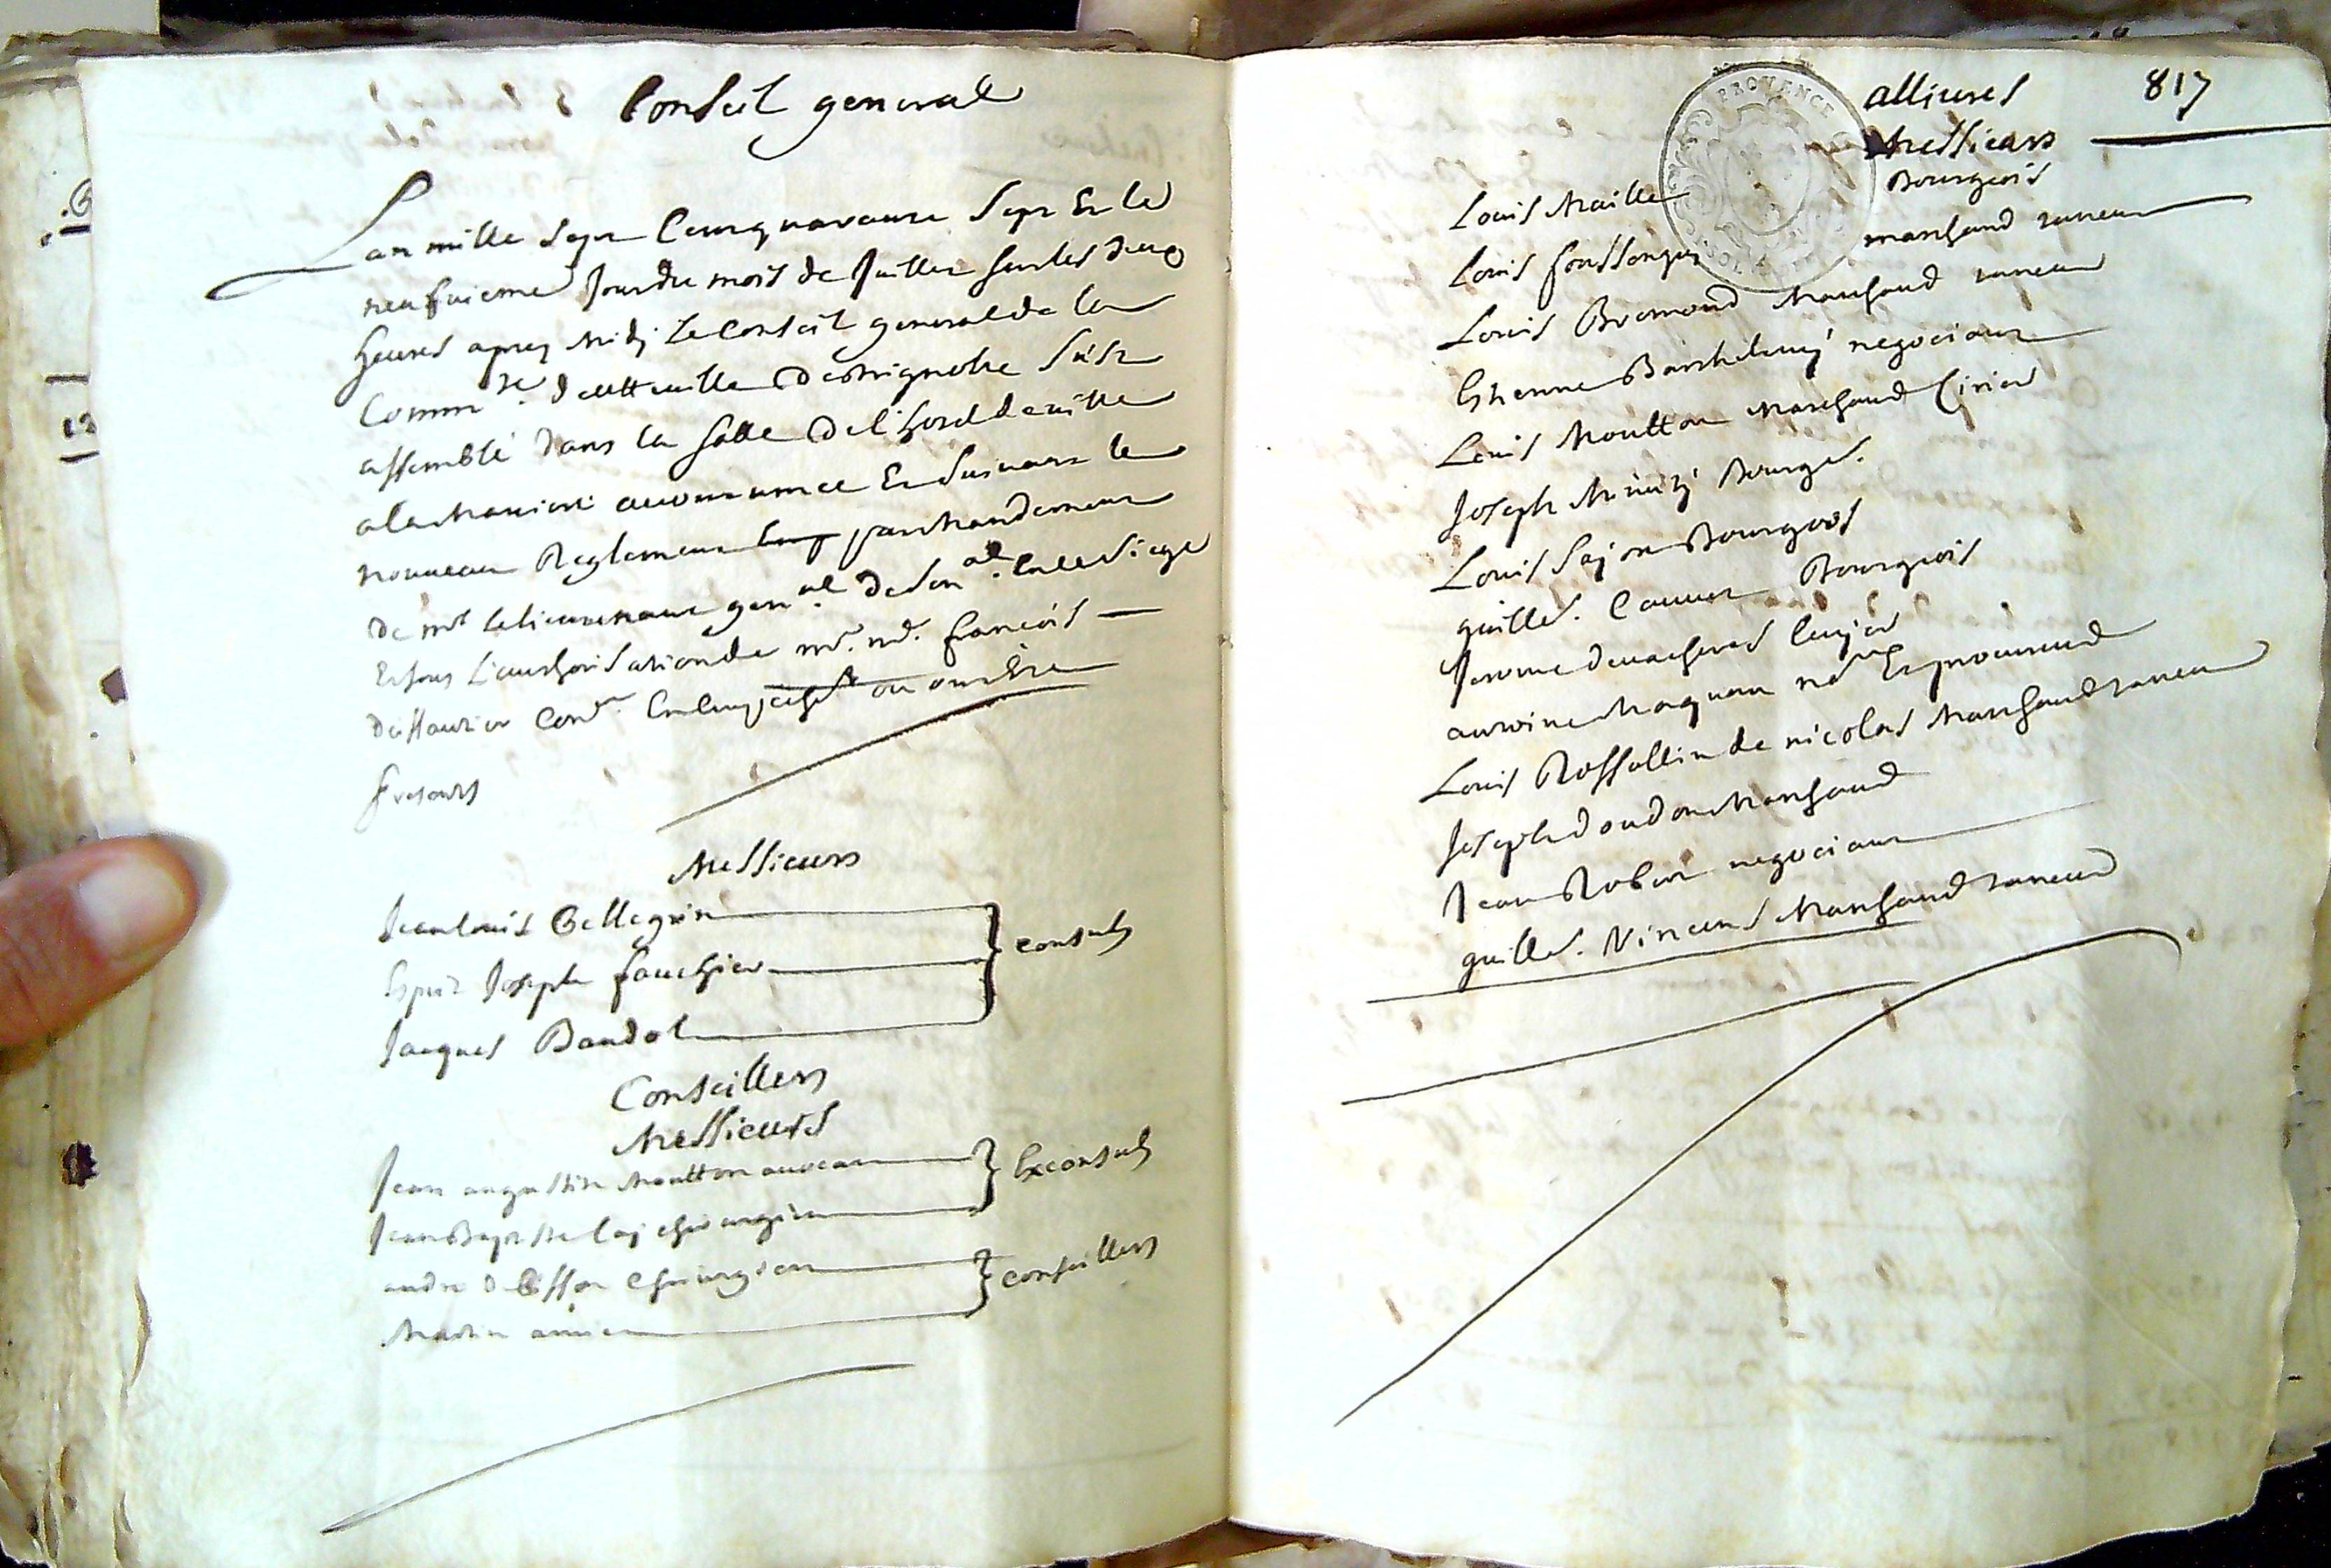 Conseil general
Lan mille sept Cent quarante sept Et le
neufuieme Jour du mois de Juillet sur les deux
heures apres Midj Le Conseil general de la
Comm.té de cette ville de Brignolle s'est
assemblé dans la salle de l'hotel de ville
a la Maniere accoutumée Et suivant le
nouveau Reglement par Mandement
de mr le lieutenant gen.al de Sen.al En ce siege
Et sous L'authorisation de mr. mr. francois
Cons.r
presents
Messieurs
Jean louis Bellegrin
Esprit Joseph fauchier
Jacques Baudol
Consuls
Conseillers
Messieurs
Jean augustin Moutton avocat
Jean Baptiste chirurgien
Exconsuls
andre chirurgien
Martin
Conseillers
817
allivrés
Messieurs
Louis Maille Bourgois
Louis marchand taneur
Louis Bremond Marchand taneur
Estienne Barthelemÿ negociant
Louis Moutton Marchand Cirier
Joseph Minutÿ Bourg.s
Louis Bourgois
guille. Bourgois
Jerome de vacheres
antoine Maquan n.re Et procureur
Louis Rossollin de nicolas Marchand taneur
Joseph doudon Marchand
Jean Robert negociant
guille. Vincens Marchand taneur
PROVENCE